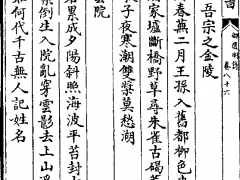 卷八十六
吾宗之金陵
春蕪二月王孫入舊都柳色
家墟斷橋野草尋朱雀古碣
子夜寒潮雙槳莫愁湖
雲院
累成夕陽斜照海波平苔封
倒生入院亂穿雲影去上山
如何代千古無人記姓名